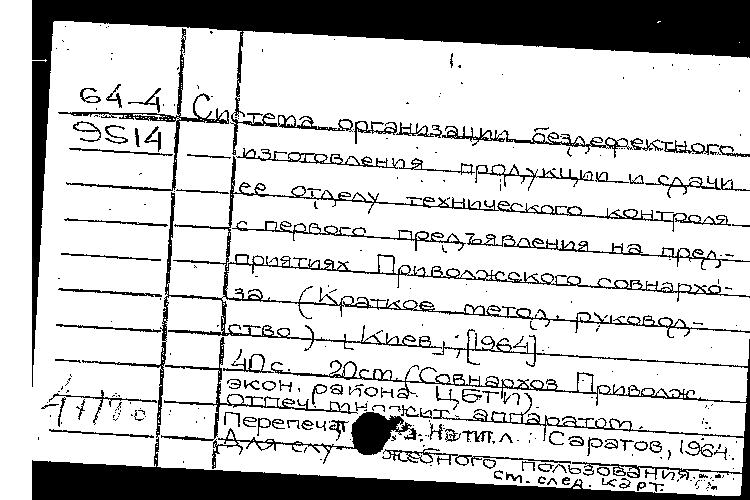 1.
64-4
9514
Система организации бездефектного
изготовления продукции и сдачи
ее отделу технического контроля
с первого предъявления на пред-
приятиях Приволжского совнархо-
за. (Краткое метод. руковод-
ство) [Киев], [1964]
40с. 20см. (Совнархоз Приволж.
экон. района. ЦБТИ).
Отпеч. множит. аппаратом.
Перепечат На тит.л.: Саратов, 1964.
Для служебного пользования.
ст. след. карт.